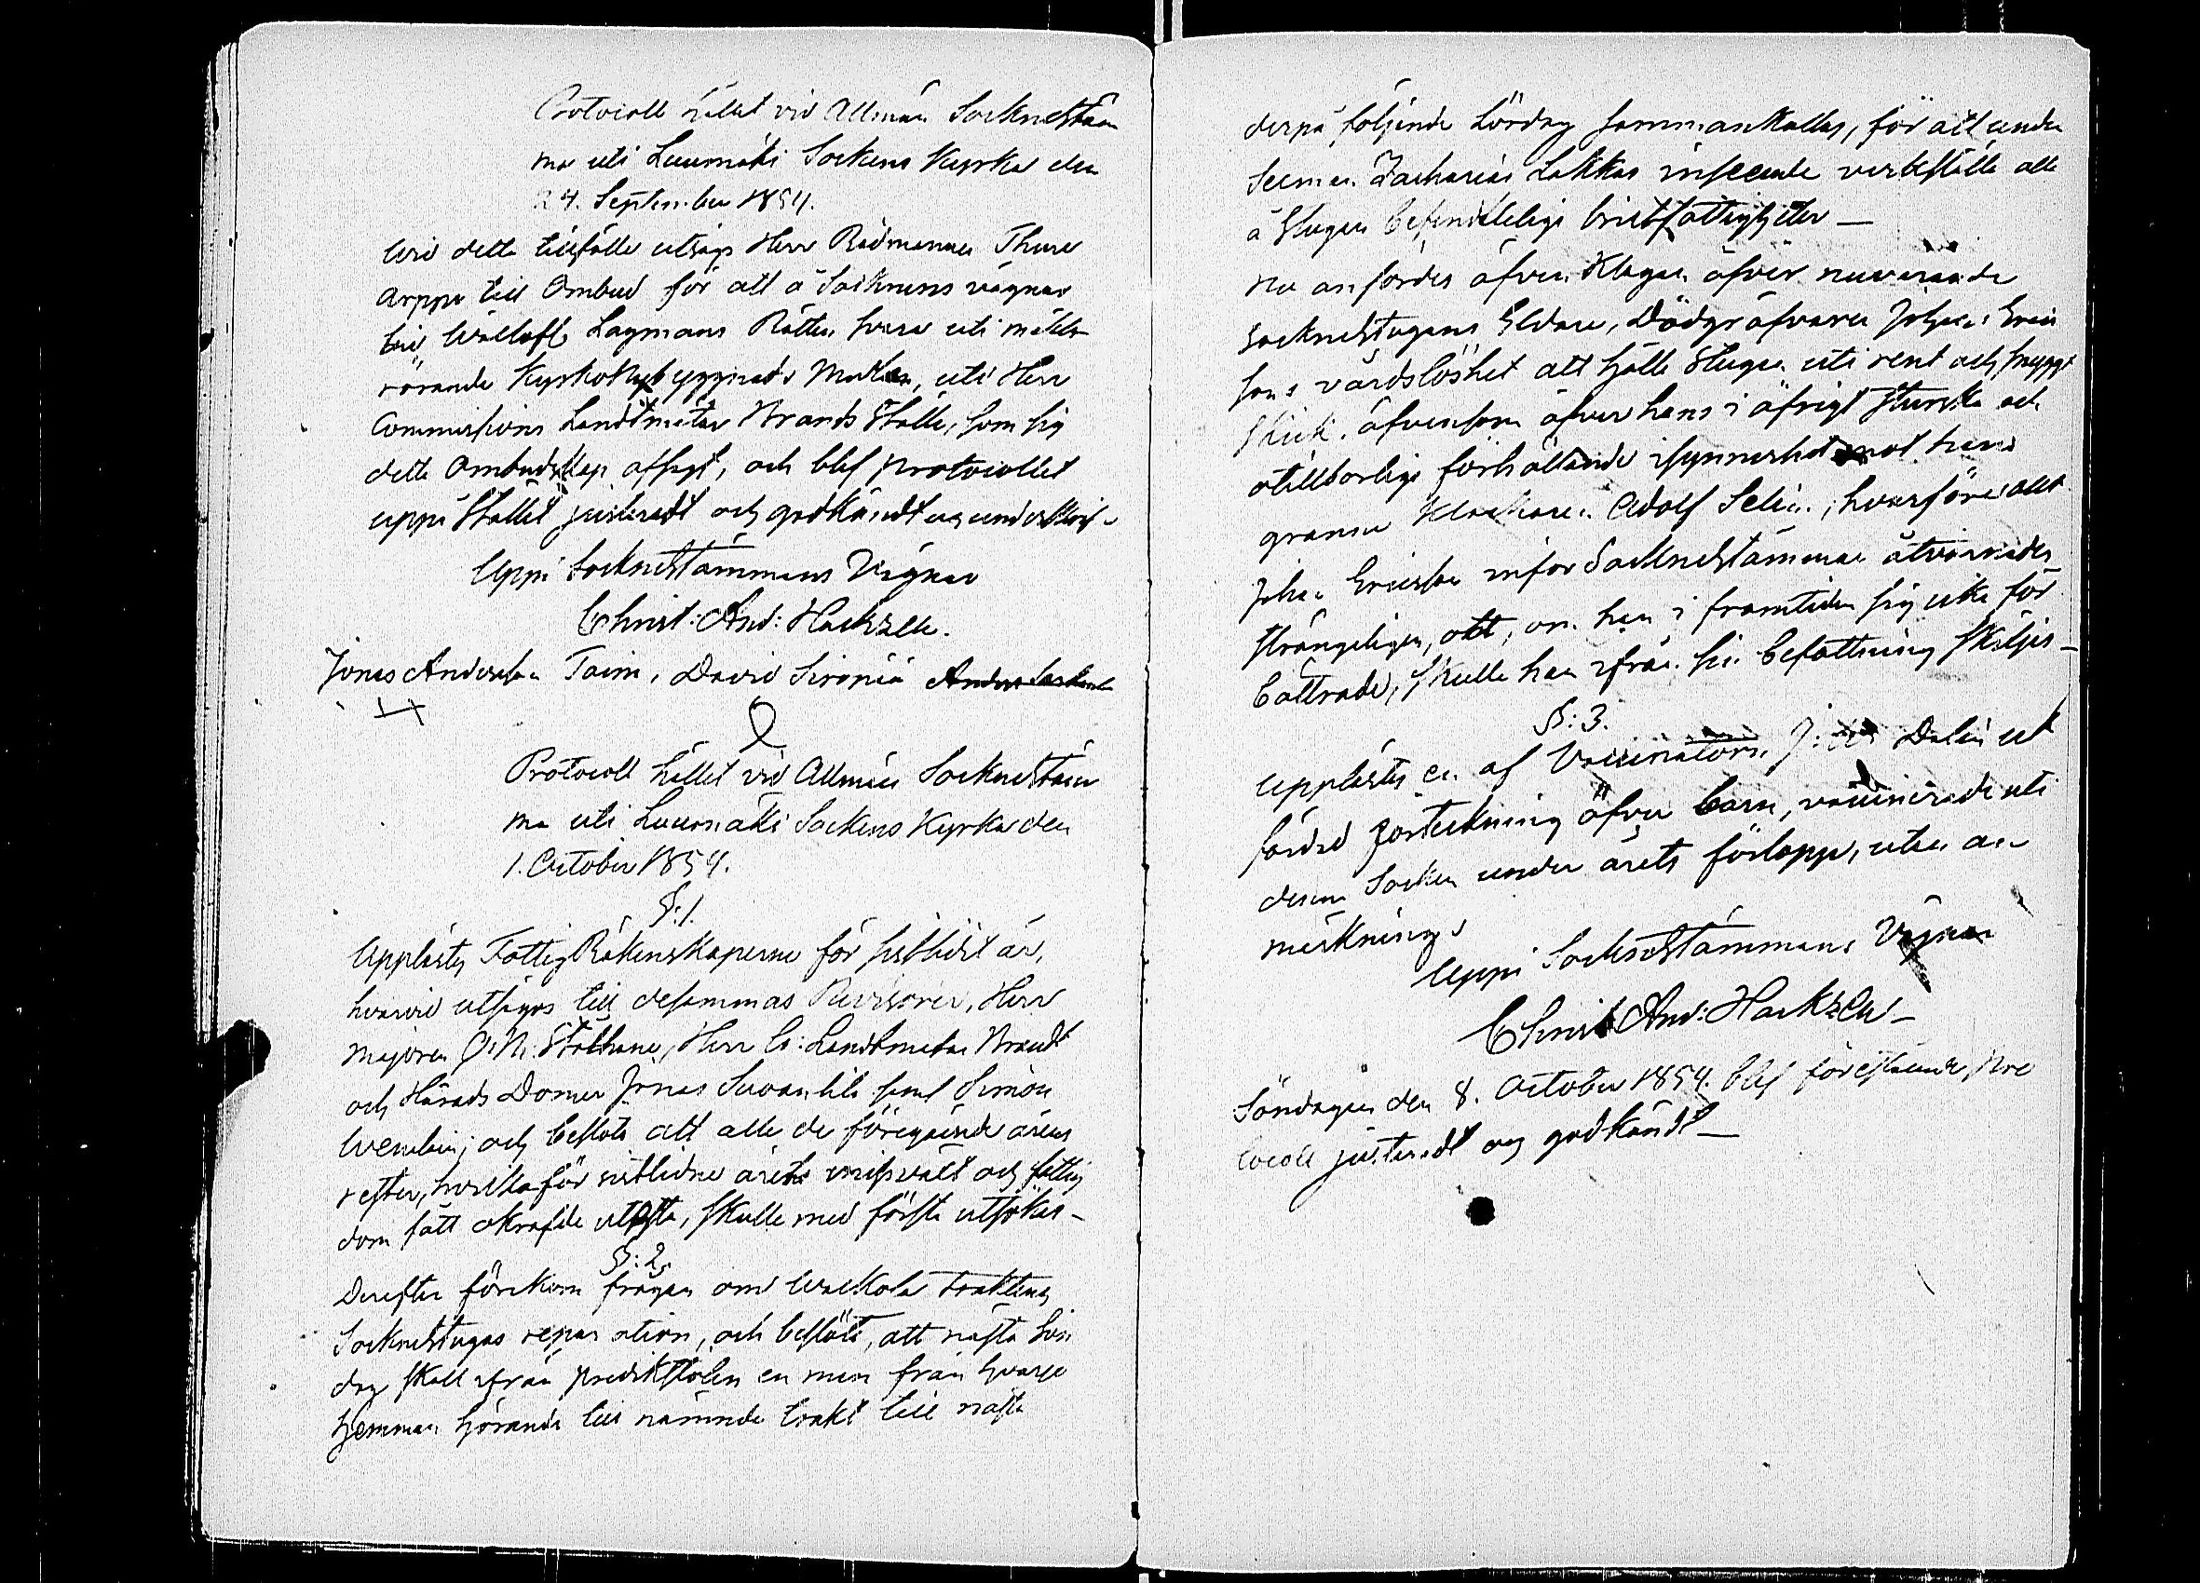 Protocoll hållet vid Allmän Socknestäm
ma uti Luumäki Sockens Kyrka den
24. September 1854.
Wid detta tillfälle utsågs Herr Rådmannen Thure
Arppe till Ombud för att å Socknens vägnar
hos Wällofl. Lagmans Rätten svara uti målet
rörande Kyrkobyggnads Marken, uti Herr
Commissions Landtmätar Brandts Ställe, som sig
detta Ombudskap afsagt, och blef protocollet
uppå Stället justeradt och godkändt
Uppå Socknestämmans Vägnar
Christ: And: Hackzell.
Jonas Andersson Toim, David Sironiä Anders
Protocoll hållet vid Allmän Socknestäm
ma uti Luumäki Sockens Kyrka den
1. October 1854.
§:1.
Upplästes FattigRäkenskaperne för sistlidit år,
hvarvid utsågos till desammas Revisorer, Herr
Majoren O: N: Stålhane, Herr C: Landtmetar Brandt
och Härads Domar Jonas Suvantila samt Simon
och beslöts att alla de föregående årens
rester, hvilka för sistlidne årets missväxt och fattig
dom fått okrafde utestå, skulle med första utsökas –
§: 2.
Derefter förekom frågan om Walkola traktens
Socknestugas reparation, och beslöts, att nästa Sön
dag skall ifrån predikstolen en man från hvarje
hemman hörande till nämnde trakt till nästa
derpå följande Lördag sammankallas, för att under
Zacharias Lakkas inseende verkställa alla
å Stugan befinteliga bristfälligheter –
Nu anfördes äfven klagan öfver nuvarande
Socknestugans Eldare, Dödgräfvaren Johan Erics
sons vårdslöshet att hålla Stugan uti rent och snyggt
skick, äfvensom öfver hans i öfrigt sturska och
otillbörliga förhållande isynnerhet mot hans
granne Klockaren Adolf Selin, hvarföre ock
Johan Ericsson inför Socknestämman åtvarnades
strängeligen, att, om han i framtiden sig icke för
bättrade, skulle han ifrån sin befattning skiljas –
§: 3.
Upplästes en af Vaccinatoren Dalin
färdad förteckning öfver barn, vaccinerade uti
denna Socken under årets förlopp, utan an
märkning
Uppå Socknestämmans Vägnar
Christ And: Hackzell –
Söndagen den 8. October 1854. blef förestående Pro
tocoll justeradt och godkändt –